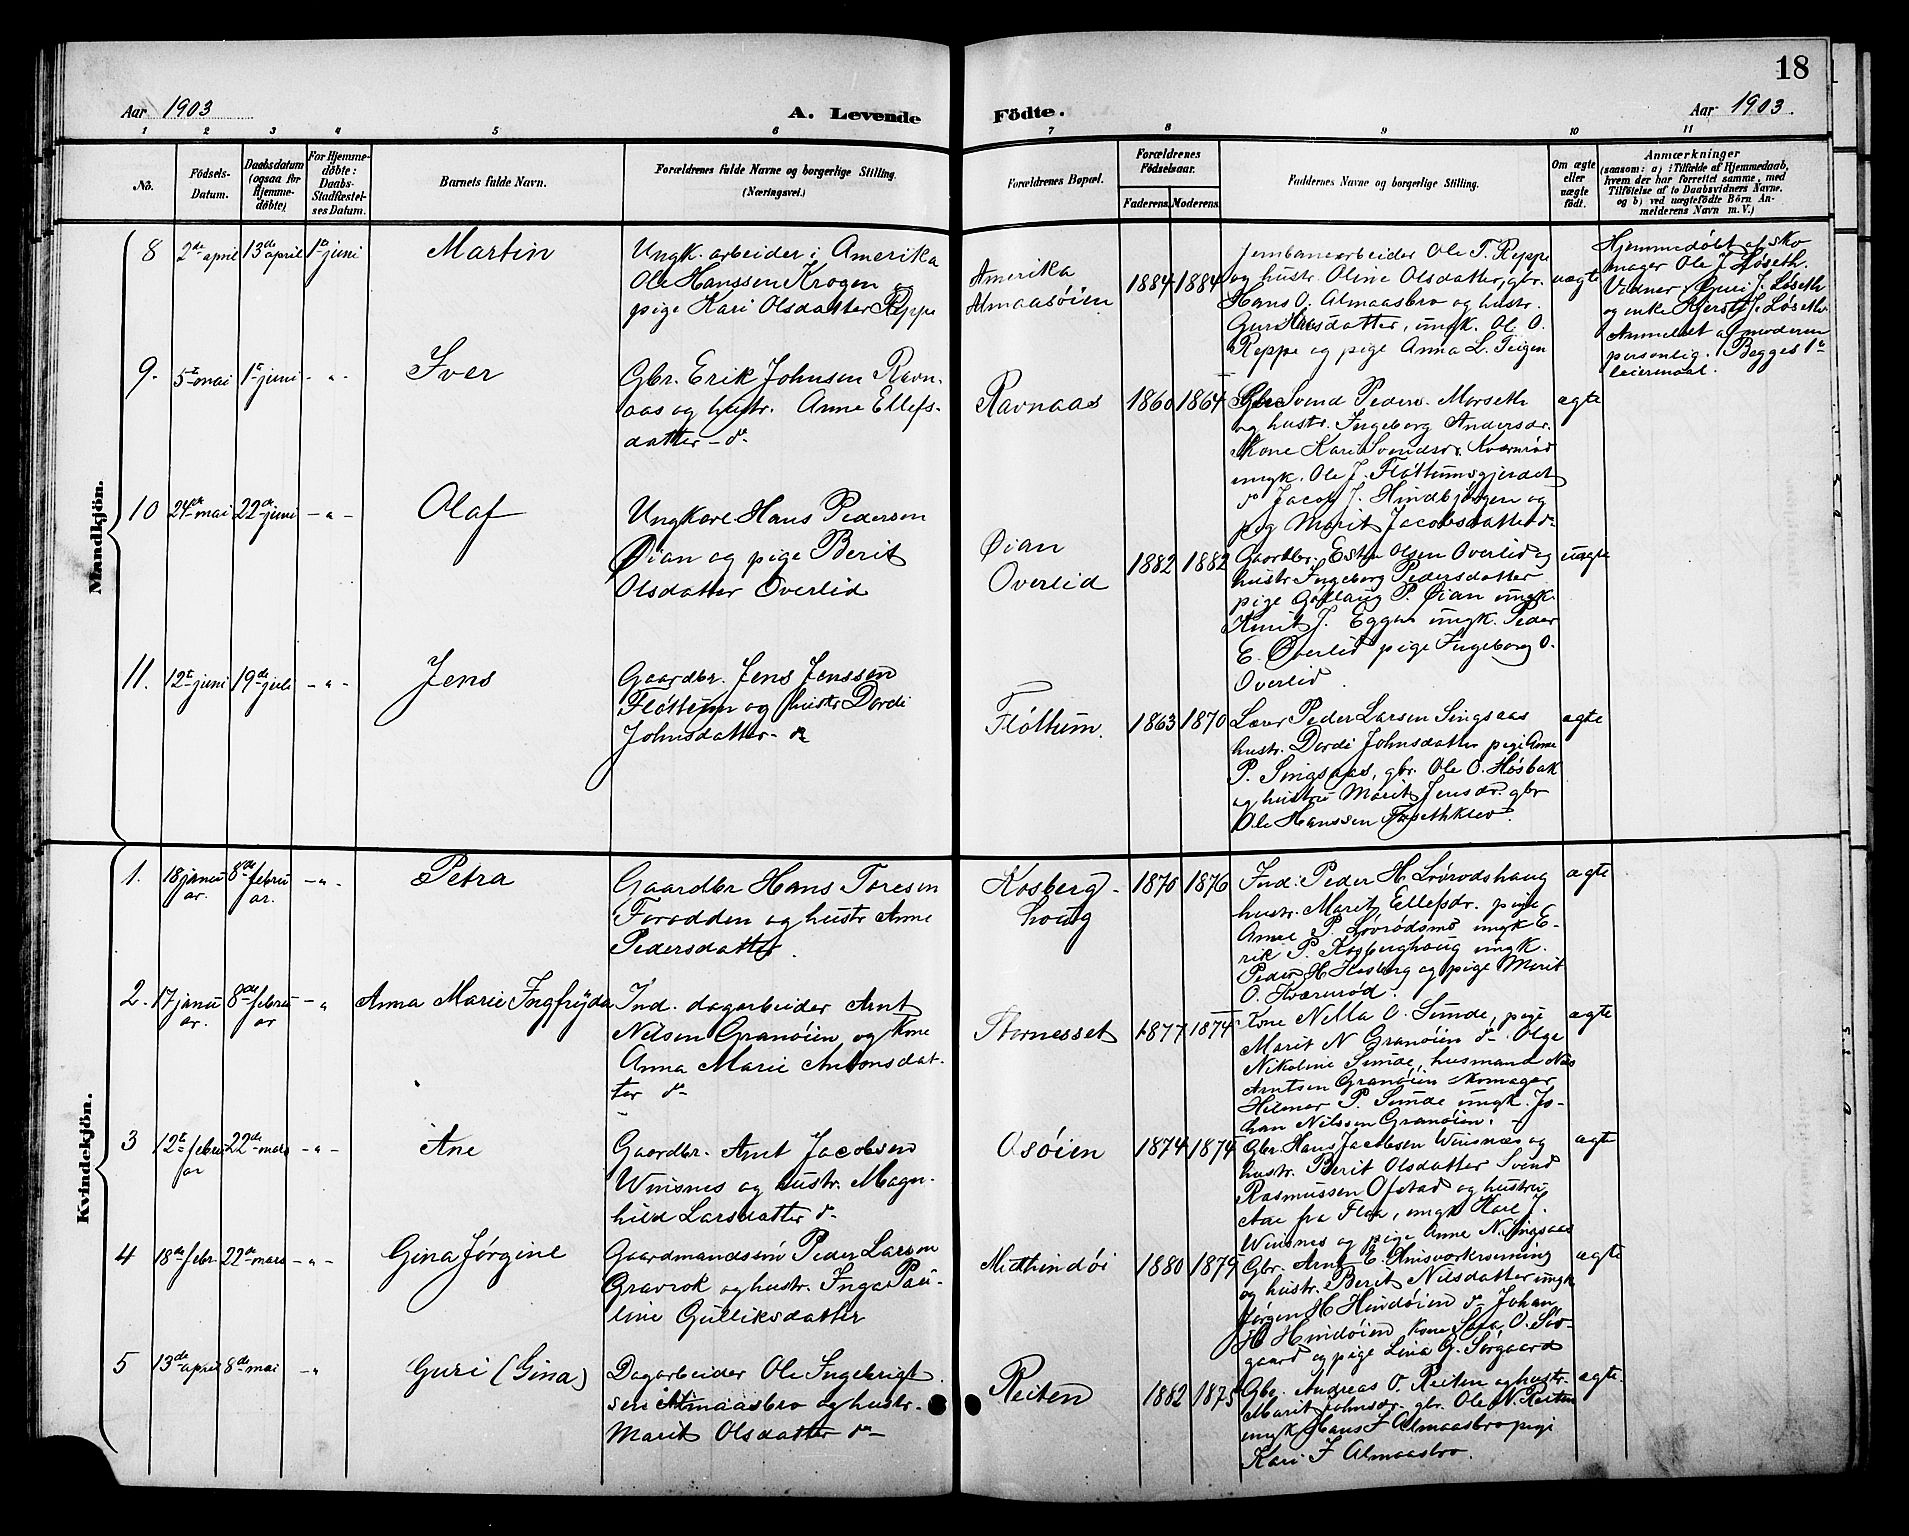 18
Aar 1903
A. Levende
Födte.
Aar 1903.
1 2 3 4 5 6 7 8 9 10 11
No.
Födsels-
Datum.
Daabsdatum
(ogsaa for
Hjemme-
döbte).
For Hjemme-
döbte:
Daabs-
Stadfæstel-
ses Datum.
Barnets fulde Navn.
Forældrenes fulde Navne og borgerlige Stilling.
(Næringsvei.)
Forældrenes Bopæl.
Forældrenes
Födselsaar.
Faderens. Moderens.
Faddernes Navne og borgerlige Stilling.
Om ægte
eller
uægte
födt.
Anmærkninger
(saasom: a) i Tilfælde af Hjemmedaab,
hvem der har forrettet samme, med
Tilföielse af to Daabsvidners Navne.
og b) ved uægtefödte Börn An-
melderens Navn m. V.)
Mandkjön.
8 2de april 13de april 1te juni
Martin
Ungk. arbeider i Amerika
Ole Hanssen Krogen og
pige Kari Olsdatter Reppe
Amerika
Almaasöien
1884 1884
Jernbanearbeider Ole T. Reppe
og hustr. Oline Olsdatter, gbr.
Hans O. Almaasbro og hustr.
Guri Hansdatter, ungk. Ole O.
Reppe og pige Anna L. Teigen
uægte
Hjemmedöbt af sko
mager Ole J. Löseth.
Vidner: Guri J. Löseth
og enke Kjersti J. Löseth.
Anmeldt af moderen
personlig. Begges 1te
leiermaal.
9. 5te mai 1te juni - " -
Iver
Gbr. Erik Johnsen Ravn-
aas og hustr. Anne Ellefs-
datter - do
Ravnaas
1860 1864
Gbr. Svend Peders. Morseth
og hustr. Ingeborg Andersdr.
Kone Kari Svendsdr. Kværnröd
ungk. Ole J. Flöttumsgjerdet
do Jacob J. Hindbjörgen og
pig Marit Jacobsdatter do
ægte
10 24de mai 22de juni - " -
Olaf
Ungkarl Hans Pedersen
Öian og pige Berit
Olsdatter Överlid
Öian
Överlid
1882 1882
Gaardbr. Esten Olsen Överlid og
hustr Ingeborg Pedersdatter
pige P. Öian ungk.
Knut J. Eggen ungk. Peder
E. Överlid pige Ingeborg O.
Överlid.
uægte
11. 12te juni 19de juli - " -
Jens
Gaardbr. Jens Jenssen
Flöttum og hustr Dordi
Johnsdatter - do
Flöttum.
1863 1870
Lærer Peder Larsen Singsaas
hustr. Dordi Johnsdatter pige Anne
P. Singsaas, gbr. Ole O. Hösbak
og hustru Marit Jensdr. gbr
Ole Hanssen
ægte
Kvindekjön.
1. 18 janu
ar. 8de febru
ar. - " -
Petra
Gaardbr Hans Toresen
Forodden og hustr Anne
Pedersdatter.
Kosberg-
houg
1870 1876
Ind. Peder H. Lörödshaug
hustr. Marit Ellefsdr. pige
Anne P. Lövrödsmo ungk E-
rik P. Kosberghoug ungk.
Peder H. Kosberg og pige Marit
O. Kværnröd.
ægte
2. 17 janu
ar. 8de febru
ar - "
Anna Marie Ingfryda
Ind. dagarbeider Arnt
Nilsen Granöien og kone
Anna Marie Antonsdat-
ter do
Störnesset
1877 1874
Kone Nella O. Simde, pige
Marit N Granöien do Olga
Nikoline Simde, husmand Nils
Arntsen Granöien skomager
Hilmar P. Simde ungk. Jo-
han Nilssen Granöien.
ægte
3 12te febru
ar 22de mars - " -
Ane
Gaardbr. Arnt Jacobsen
Winsnes og hustr. Magn-
hild Larsdatter do
Osöien
1874 1874
Gbr. Hans Jacobsen Winsnæs og
hustr. Berit Olsdatter Svend
Rasmussen Ofstad og hustru
Ane fra Floa, ungk Hans J.
Winsnes og pige Anne N. Singsaas
ægte
4 18de febr. 22de mars - " -
Gina Jörgine
Gaardmandssön Peder Larsen
Gravrok og hustr. Inga Pau-
line Gulliksdatter
Midthindöi
1880 1879
Gbr. Arnt E.
og hustr. Berit Nilsdatter ungk
Jörgen H Hindöien do Johan
H Hindöien kone Sara O. Sör-
gaard og pige Lina G. Sörgaard
ægte
5 13de april 8de mai - "
Guri (Gina)
Dagarbeider Ole Ingebrigt-
sen Almaasbro og hustr.
Marit Olsdatter do
Reiten
1882 1875
Gbr. Andreas O. Reiten og hustr.
Marit Johnsdr. gbr. Ole N. Reiten
ungk Hans I Almaasbro pige
Kari I Almaasbro.
ægte.